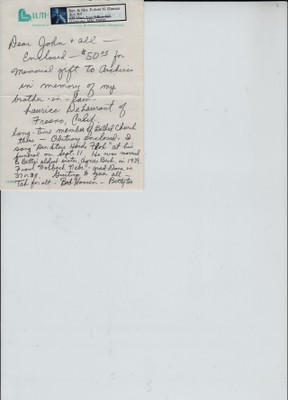 Rev. & Mrs. Robert N. Hansen
Dear John & all —
Enclosed — $50.00 for
Memorial gift to Archives
in memory of my
brother-in-law
Laurice DeLaurant of
Fresno, Calif.
Long-time member of Bethel Church
there — Obituary Enclosed. I
song "Den Store Hvide Flok" at his
funeral on Sept. 11. He was married
to Betty's oldest sister, Agnes Bach, in 1939.
From Nebr. - Dana in
37 or 38. Greeting to you all —
Tak for alt - Bob Hansen -